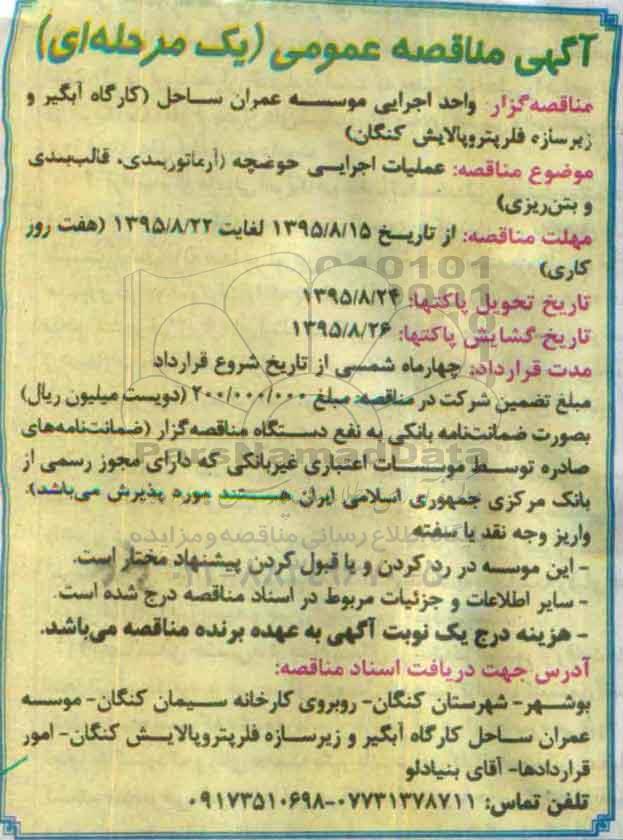 آگهی مناقصه عمومی (یک مرحله‌ای)
مناقصه‌گزار: واحد اجرایی موسسه عمران ساحل (کارگاه آبگیر و
زیرسازه فلرپتروپالایش کنگان)
موضوع مناقصه: عملیات اجرایی حوضچه (آرماتوربندی، قالب‌بندی
و بتن‌ریزی)
مهلت مناقصه: از تاریخ ۱۳۹۵/۸/۱۵ لغایت ۱۳۹۵/۸/۲۲ (هفت روز
کاری)
تاریخ تحویل پاکتها: ۱۳۹۵/۸/۲۴
تاریخ گشایش پاکتها: ۱۳۹۵/۸/۲۶
مدت قرارداد: چهارماه شمسی از تاریخ شروع قرارداد
مبلغ تضمین شرکت در مناقصه: مبلغ ۲۰۰/۰۰۰/۰۰۰ (دویست میلیون ریال)
بصورت ضمانت‌نامه بانکی به نفع دستگاه مناقصه‌گزار (ضمانت‌نامه‌های
صادره توسط موسسات اعتباری غیربانکی که دارای مجوز رسمی از
بانک مرکزی جمهوری اسلامی ایران هستند مورد پذیرش می‌باشد).
واریز وجه نقد یا سفته
- این موسسه در رد کردن و یا قبول کردن پیشنهاد مختار است.
- سایر اطلاعات و جزئیات مربوط در اسناد مناقصه درج شده است.
- هزینه درج یک نوبت آگهی به عهده برنده مناقصه می‌باشد.
آدرس جهت دریافت اسناد مناقصه:
بوشهر- شهرستان کنگان- روبروی کارخانه سیمان کنگان- موسسه
عمران ساحل کارگاه آبگیر و زیرسازه فلرپتروپالایش کنگان- امور
قراردادها- آقای بنیادلو
تلفن تماس: ۰۷۷۳۱۳۷۸۷۱۱-۰۹۱۷۳۵۱۰۶۹۸
ParsNamadData